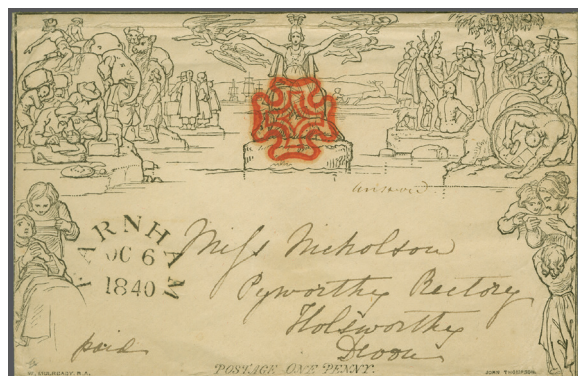 FARNHAM
OC 6
1840
Miss Nicholson
Pyworthy Rectory
Holsworthy
Devon
paid
W. MULREADY. R.A.
POSTAGE ONE PENNY.
JOHN THOMPSON.